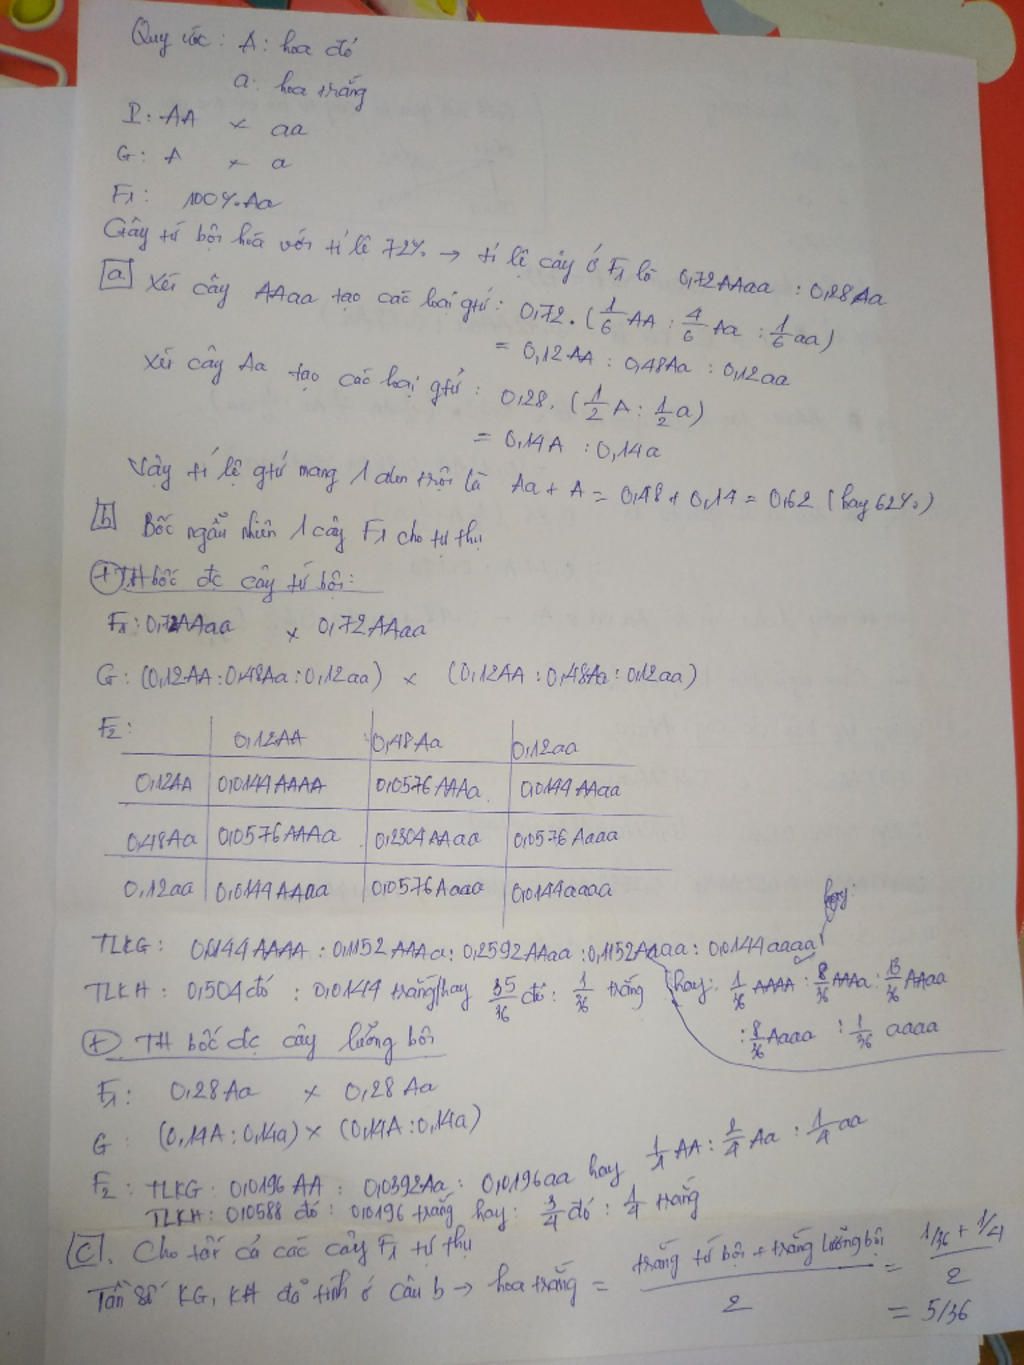 Quy ước: A: hoa đỏ
a: hoa trắng
P: AA × aa
G: A × a
F1: 100% Aa
Gây tứ bội hoá với tỉ lệ 72% → tỉ lệ cây ở F1 là 0,72AAaa : 0,28Aa
a Xét cây AAaa tạo các loại gtử: 0,72.(1/6 AA : 4/6 Aa : 1/6 aa)
= 0,12AA : 0,48Aa : 0,12aa
Xét cây Aa tạo các loại gtử: 0,28.(1/2 A : 1/2 a)
= 0,14A : 0,14a
Vậy tỉ lệ gtử mang 1 alen trội là Aa + A = 0,48 + 0,14 = 0,62 (hay 62%)
b Bốc ngẫu nhiên 1 cây F1 cho tự thụ
+ TH bốc đc cây tứ bội:
F1: 0,72AAaa × 0,72AAaa
G: (0,12AA : 0,48Aa : 0,12aa) × (0,12AA : 0,48Aa : 0,12aa)
F2: 0,12AA 0,48Aa 0,12aa
0,12AA 0,0144AAAA 0,0576AAAa 0,0144AAaa
0,48Aa 0,0576AAAa 0,2304AAaa 0,0576Aaaa
0,12aa 0,0144AAaa 0,0576Aaaa 0,0144aaaa
hay:
TLKG: 0,0144AAAA : 0,1152AAAa : 0,2592AAaa : 0,1152Aaaa : 0,0144aaaa
TLKH: 0,504 đỏ : 0,0144 trắng hay 35/36 đỏ : 1/36 trắng (hay: 1/36 AAAA : 8/36 AAAa : 18/36 AAaa
: 8/36 Aaaa : 1/36 aaaa
+ TH bốc đc cây lưỡng bội
F1: 0,28Aa × 0,28Aa
G: (0,14A : 0,14a) × (0,14A : 0,14a)
F2: TLKG: 0,0196AA : 0,0392Aa : 0,0196aa hay 1/4 AA : 2/4 Aa : 1/4 aa
TLKH: 0,0588 đỏ : 0,0196 trắng hay: 3/4 đỏ : 1/4 trắng
c. Cho tất cả các cây F1 tự thụ
Tần số KG, KH đã tính ở câu b → hoa trắng = trắng tứ bội + trắng lưỡng bội / 2 = 1/36 + 1/4 / 2
= 5/36